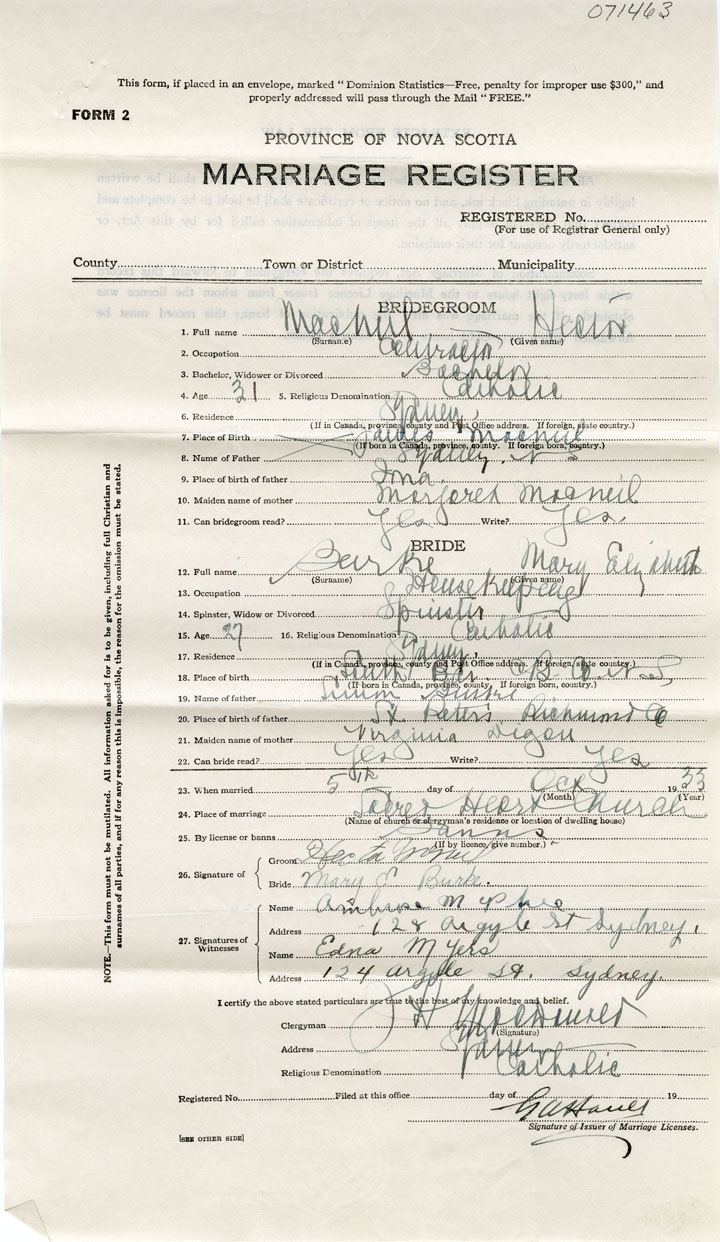 071463
This form, if placed in an envelope, marked "Dominion Statistics—Free, penalty for improper use $300," and
properly addressed will pass through the Mail "FREE."
FORM 2
PROVINCE OF NOVA SCOTIA
MARRIAGE REGISTER
REGISTERED No.
(For use of Registrar General only)
County Town or District Municipality
BRIDEGROOM
1. Full name MacNeil Hector
(Surname) (Given name)
2. Occupation Contractor
3. Bachelor, Widower or Divorced Bachelor
4. Age 31 5. Religious Denomination Catholic
6. Residence Sydney
(If in Canada, province, county and Post Office address. If foreign, state country.)
7. Place of Birth James MacNeil
(If born in Canada, province, county. If foreign, country.)
8. Name of Father Sydney, N S
9. Place of birth of father Iona
10. Maiden name of mother Margaret MacNeil
11. Can bridegroom read? Yes Write? Yes.
BRIDE
12. Full name Burke Mary Elizabeth
(Surname) (Given name)
13. Occupation Housekeeping
14. Spinster, Widow or Divorced Spinster
15. Age 27 16. Religious Denomination Catholic
17. Residence Sydney
(If in Canada, province, county and Post Office address. If foreign, state country.)
18. Place of birth South Bar C B Co N S
(If born in Canada, province, county. If foreign, country.)
19. Name of father Simon Burke
20. Place of birth of father St Peter's Richmond Co
21. Maiden name of mother Virginia
22. Can bride read? Yes Write? Yes
23. When married 5th day of Oct 1933
(Month) (Year)
24. Place of marriage Sacred Heart Church
(Name of church or clergyman's residence or location of dwelling house)
25. By license or banns Banns
(If by licence, give number.)
26. Signature of
Groom Hector McNeil
Bride Mary E Burke.
27. Signatures of Witnesses
Name Ambrose
Address 128 Argyle St Sydney.
Name Edna Myers
Address 124 Argyle St. Sydney.
I certify the above stated particulars are true to the best of my knowledge and belief.
Clergyman MacDonald
(Signature)
Address Sydney
Religious Denomination Catholic
Registered No. Filed at this office day of 19
Signature of Issuer of Marriage Licenses.
[SEE OTHER SIDE]
NOTE.—This form must not be mutilated. All information asked for is to be given, including full Christian and
surnames of all parties, and if for any reason this is impossible, the reason for the omission must be stated.